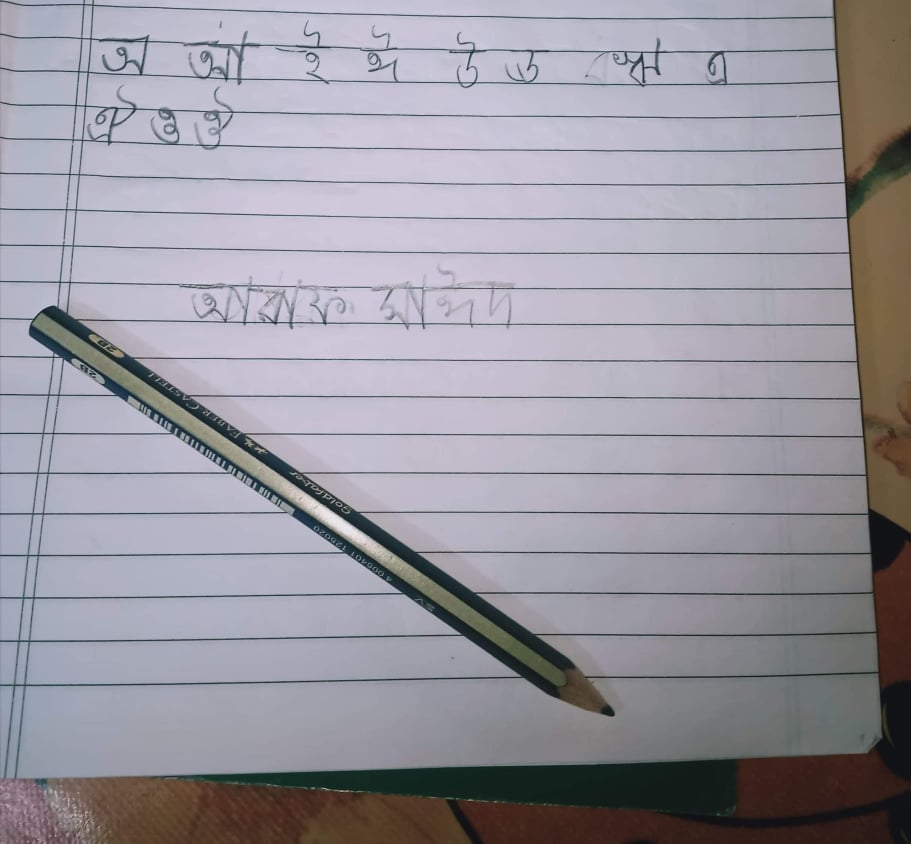 অ আ ই ঈ উ ঊ ঋ এ
ঐ ও ঔ
সাঈদ
2B
2B
FABER-CASTELL
Goldfaber
4 005401 125020